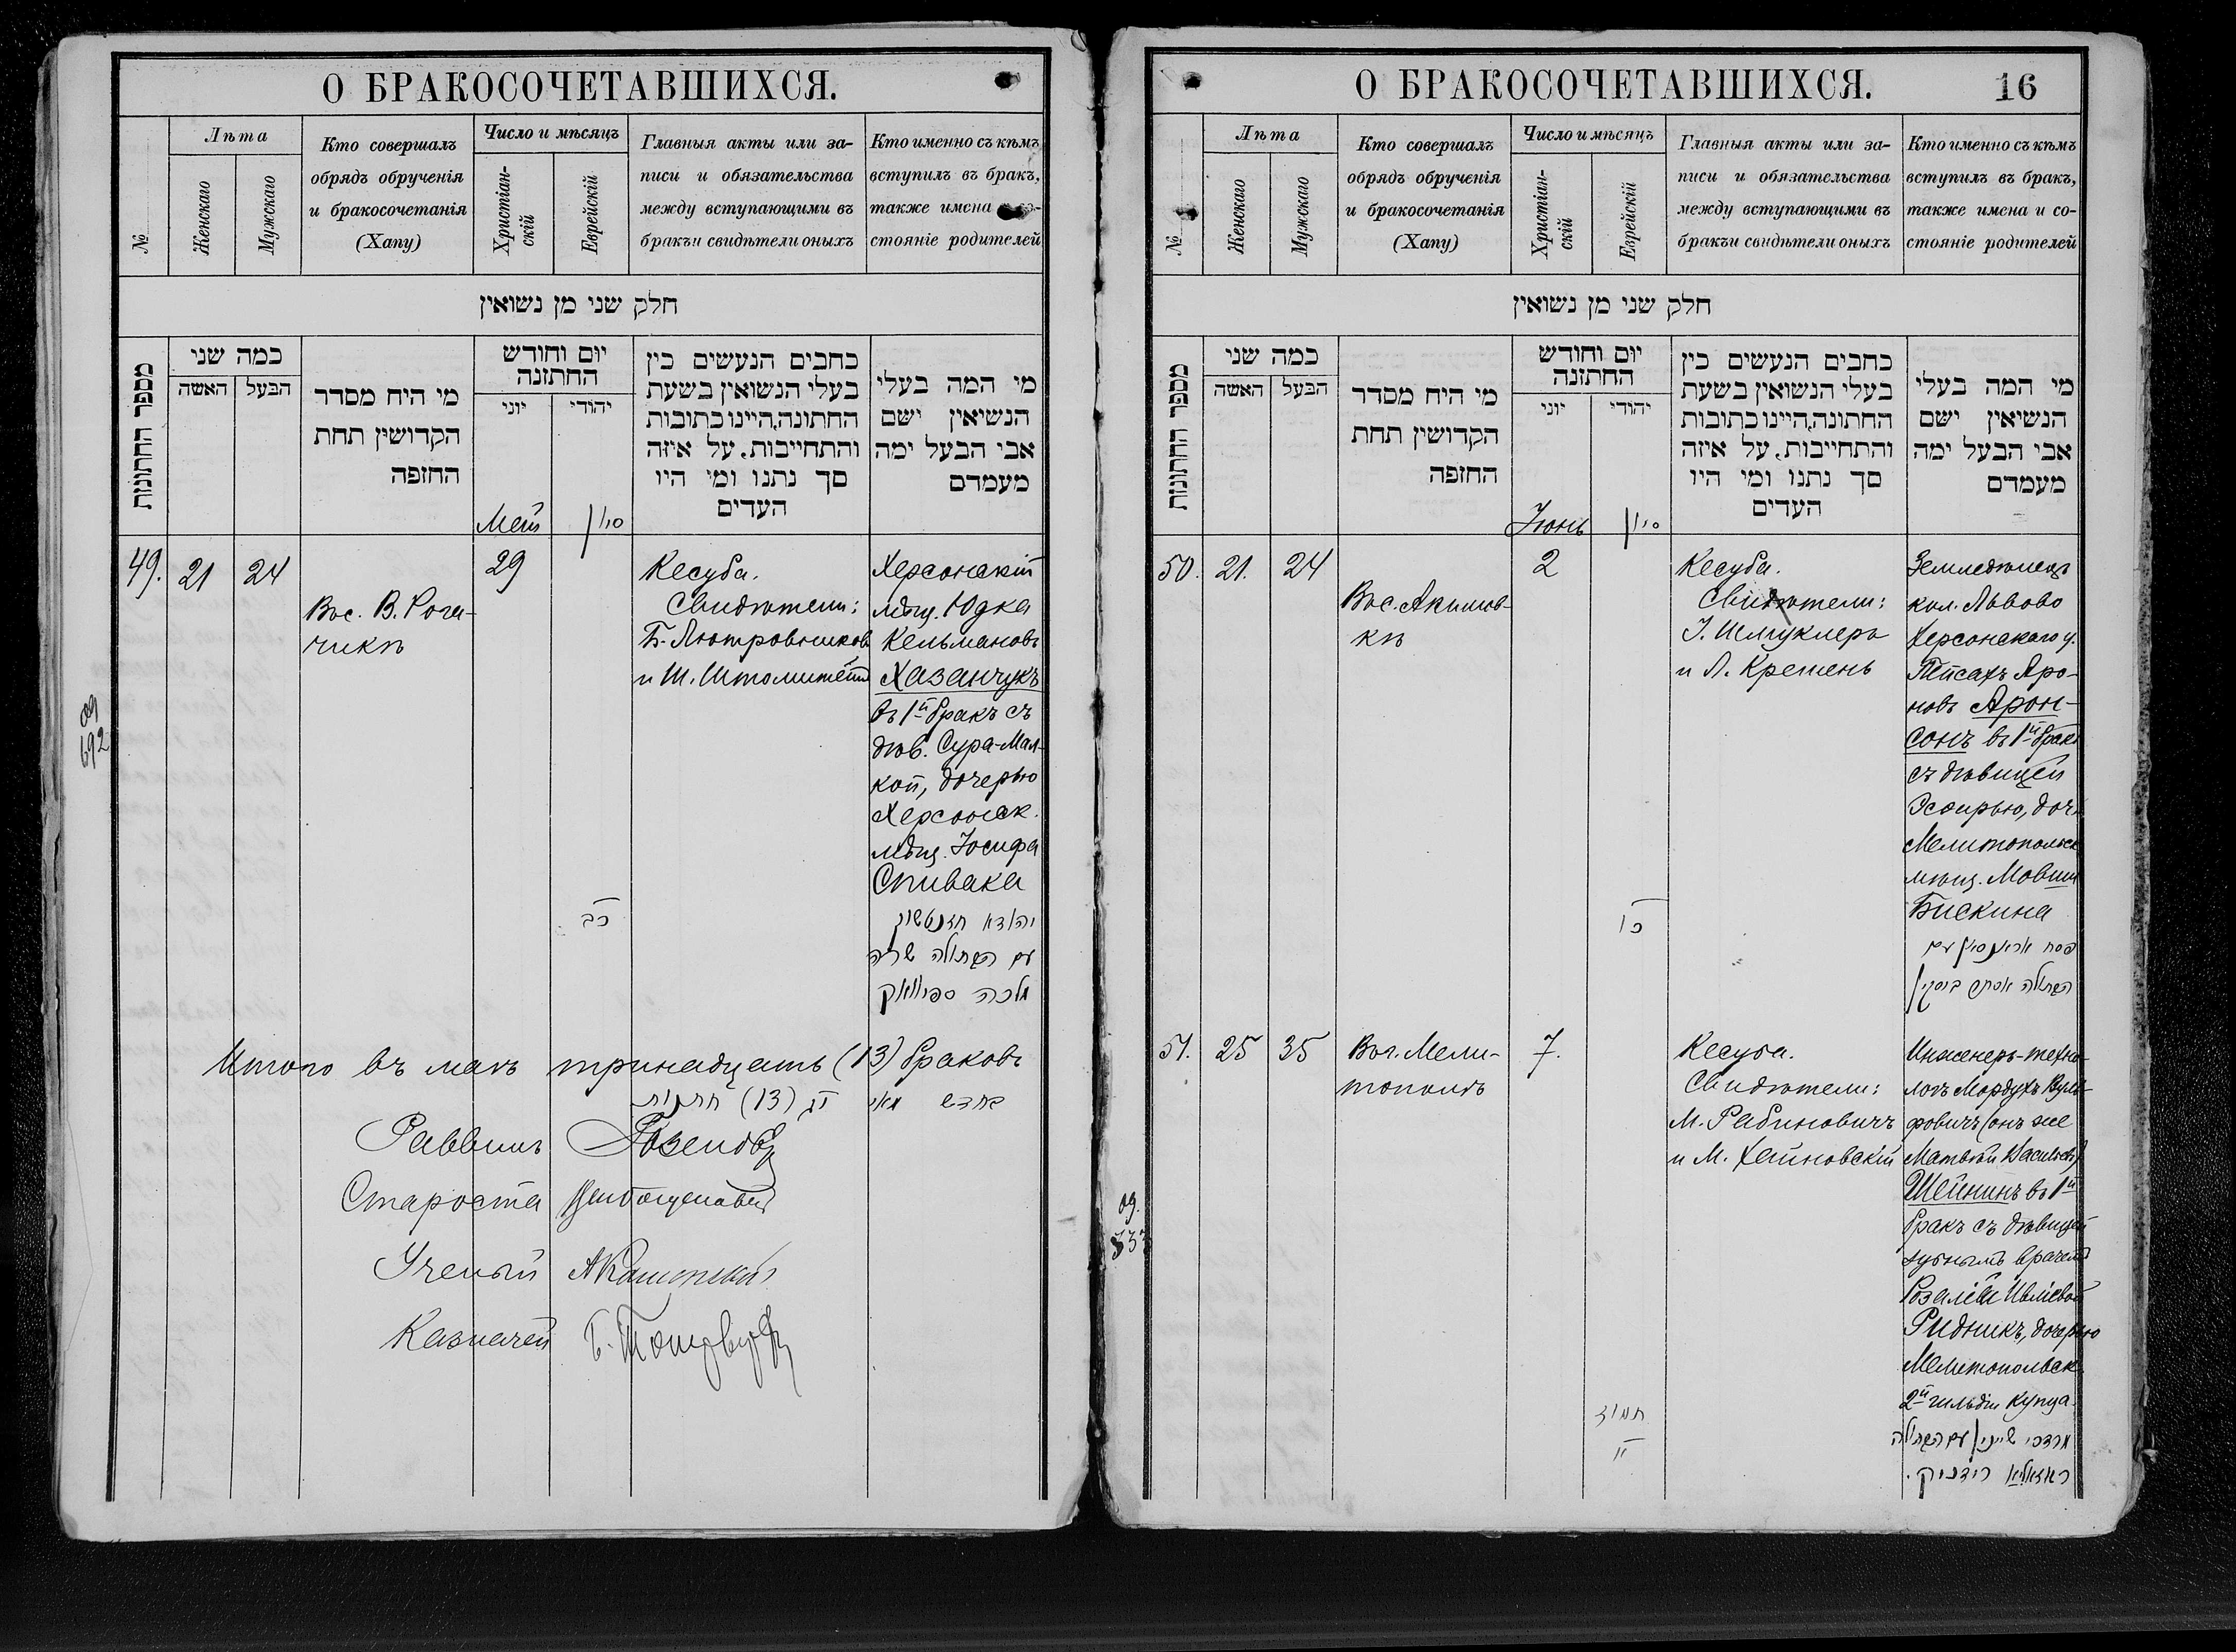 О БРАКОСОЧЕТАВШИХСЯ.
№
Лѣта
Женскаго
Мужскаго
Кто совершалъ
обрядъ обрученія
и бракосочетанія
(Хапу)
Число и мѣсяцъ
Христіан-
скій
Еврейскій
Главныя акты или за-
писи и обязательства
между вступающими въ
бракъи свидѣтели оныхъ
Кто именно съ кѣмъ
вступилъ въ бракъ,
также имена
стояніе родителей
חלק שני מן נשואין
מספר החתונות
כמה שני
האשה
הבעל
מי היח מסדר
הקדושין תחת
החזפה
יום וחודש
החתזנה
יוני
יהודי
כחבים הנעשים כין
בעלי הנשואין בשעת
החתונה,היינו כתובות
והתחייבות, על איזה
סך נתנו ומי היו
העדים
מי המה בעלי
הנשיאין ישם
אבי הבעל ימה
מעמדם
Май
סיון
49. 21 24
Вос. В. Рога-
чикѣ
29
כב
Кесуба.
Свидѣтели:
Б. Лютровников
и Ш. Штолитейн
Херсонскій
мѣщ. Юдка
Кельмановъ
Хазанчукъ
въ 1й бракъ съ
дѣв. Сура-Мал-
кой, дочерью
Херсонск.
мѣщ. Іосифа
Спивака
יהודא חזנטשוק
עם הבתולה שרה
מלכה ספיוואק
од
692
Итого въ маѣ тринадцать (13) браковъ
בחדש מאי יג (13) חתנות
Раввинъ
Староста
Ученый
Казначей
О БРАКОСОЧЕТАВШИХСЯ.
16
№
Лѣта
Женскаго
Мужскаго
Кто совершалъ
обрядъ обрученія
и бракосочетанія
(Хапу)
Число и мѣсяцъ
Христіан-
скій
Еврейскій
Главныя акты или за-
писи и обязательства
между вступающими въ
бракъи свидѣтели оныхъ
Кто именно съ кѣмъ
вступилъ въ бракъ,
также имена и со-
стояніе родителей
חלק שני מן נשואין
מספר החתונות
כמה שני
האשה
הבעל
מי היח מסדר
הקדושין תחת
החזפה
יום וחודש
החתזנה
יוני
יהודי
כחבים הנעשים כין
בעלי הנשואין בשעת
החתונה,היינו כתובות
והתחייבות, על איזה
סך נתנו ומי היו
העדים
מי המה בעלי
הנשיאין ישם
אבי הבעל ימה
מעמדם
Іюнь
סיון
50. 21. 24
Вос. Акимов-
кѣ
2
כו
Кесуба.
Свидѣтели:
І. Шмуклеръ
и Л. Кремень
Земледѣлецъ
кол. Львово
Херсонскаго у.
Пейсахъ Аро-
новъ Арон-
сонъ въ 1й бракъ
съ дѣвицей
Эсѳирью, доч.
Мелитопольск
мѣщ. Мовши
Бискина
פסח אראנסאן עם
הבתולה אסתר ביסקין
51. 25 35
Вог. Мели-
тополѣ
7.
תמוז
יו
Кесуба.
Свидѣтели:
М. Рабиновичъ
и М. Хайновскій
Инженеръ-техно-
логъ Мордухъ Вуль-
фовичъ (онъ же
Матвѣй Васильев)
Шейнинъ въ 1й
бракъ съ дѣвицей
зубнымъ врачемъ
Розаліей
Ридникъ, дочерью
Мелитопольск
2й гильдіи купца.
מרדכי שיינין עם הבתולה
ראזאליא רידניק.
од.
533